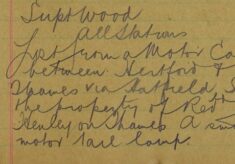 Supt Wood
All Stations
Lost from a Motor Ca
between Hertford &
Thames via Hatfield S
the property of Revd
Henley on Thames A sm
motor tail lamp.